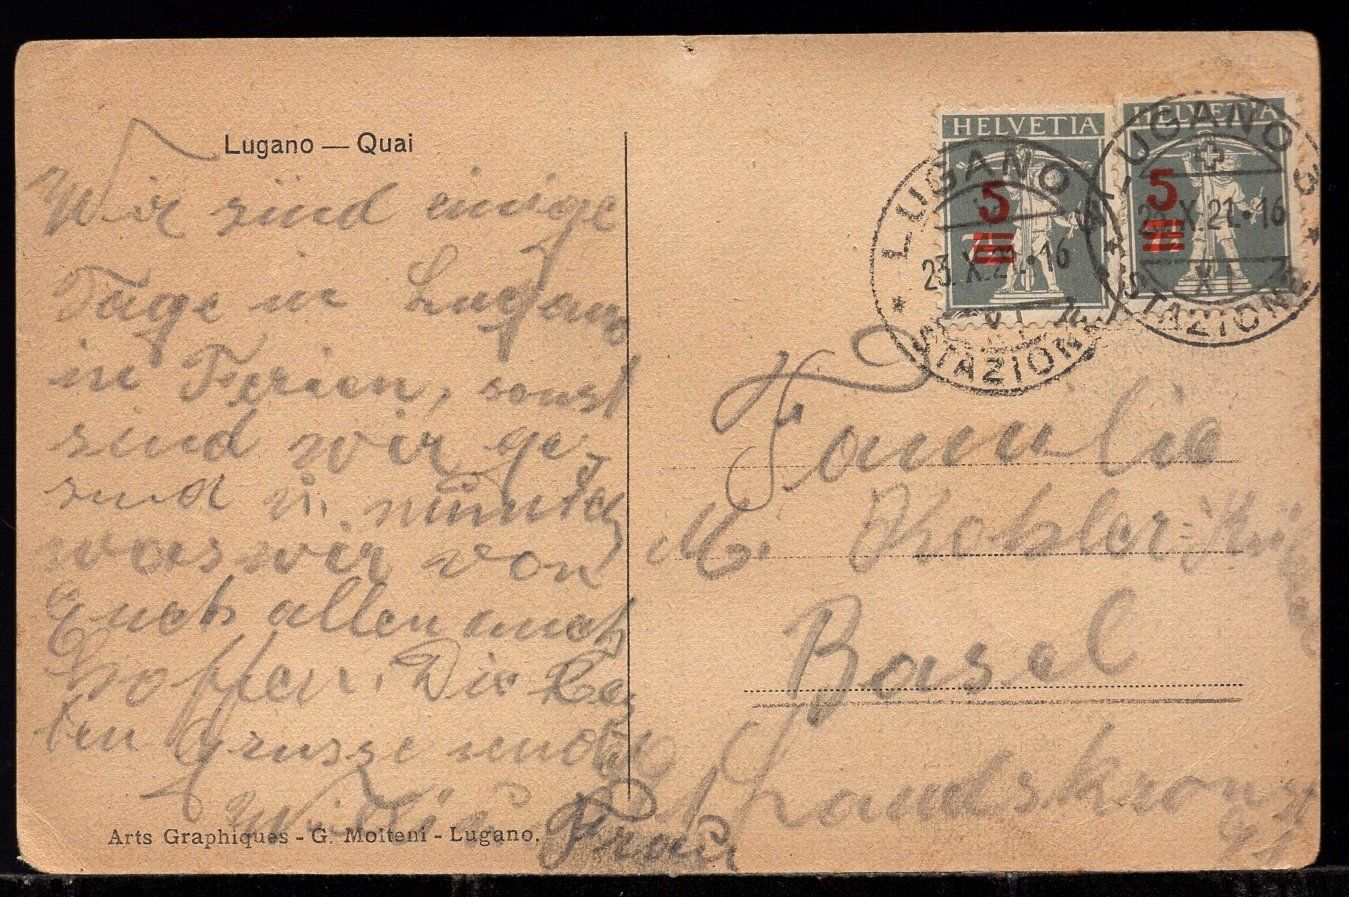 Lugano — Quai
Wir sind einige
Tage in Lugano
in Ferien, sonst
sind wir ge-
sund u. munter
was wir von
Euch allen auch
hoffen. Die Be
ten Grüsse sendet
Willi
Frau
Arts Graphiques - G. Molteni - Lugano.
HELVETIA
5
HELVETIA
5
LUGANO
23.X.21.16
STAZIONE
LUGANO
23.X.21.16
XI
STAZIONE
Familie
M. Kohler=
Basel
Landskronstr